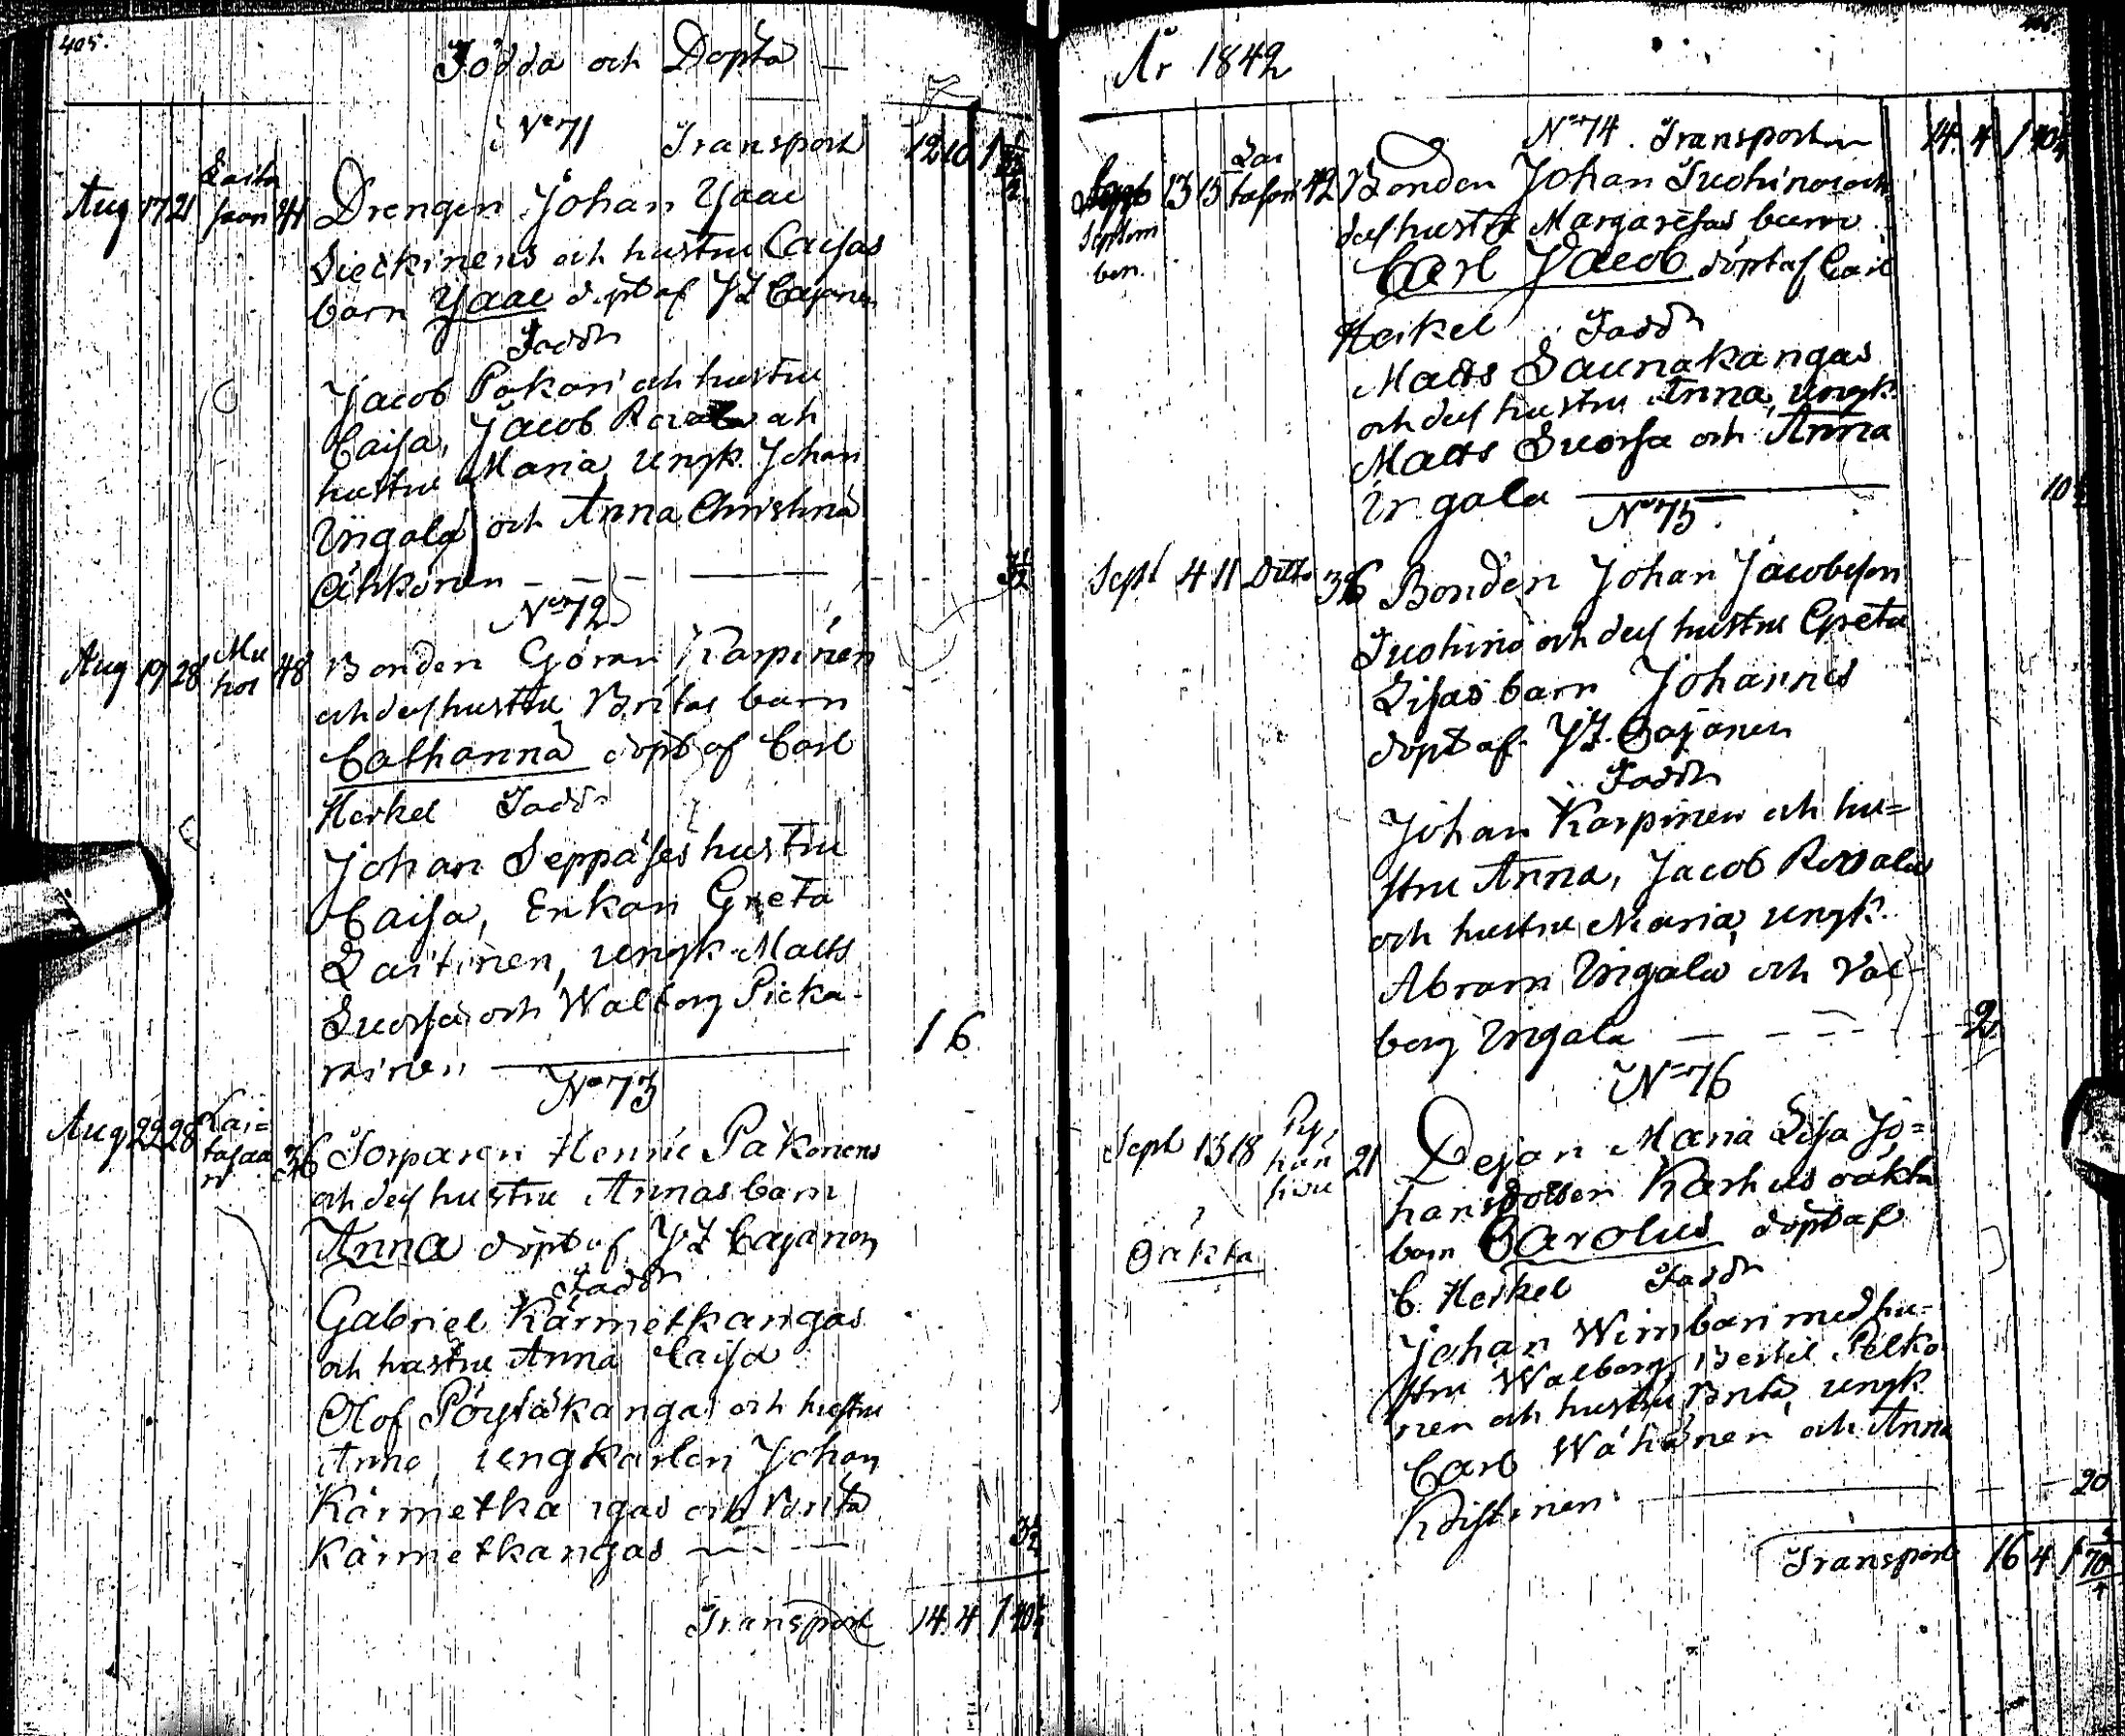 405.
Födda och Döpta
No 71 Transport 12 10 1
Aug 17 21 Laita saari 44 Drengen Johan Isaac
Sieckinens och hustru Caisas
barn Isaac döpt af J Z Cajanen
Faddr
Jacob Pokari och hustru
Caisa, Jacob och
hustru Maria, ungk. Johan
Yrigala och Anna Christina
Ähkönen 3½
No 72
Aug 19 28 Mu hos 48 Bonden Göran Karpinen
och dess hustru Britas barn
Catharina döpt af Carl
Heikel Faddr
Johan Seppäses hustru
Caisa, Enkan Greta
Laitinen, ungk. Matts
Suorsa och Walborg Picka-
rainen 1 6
No 73
Aug 22 28 Lai= tasaa ri 36 Torparen Henric Påkonens
och dess hustru Annas barn
Anna döpt af J Z Cajanen
Faddr
Gabriel Kärmetkangas
och hustru Anna Caisa
Olof Pöystäkangas och hustru
Anna, ungkarlen Johan
Kärmetkangas och Brita
Kärmetkangas 3½
Transport 14 4 1 10½
År 1842
No 74. Transport 14. 4 1 10½
Septem ber. 13 15 Lai tasari 42 Bonden Johan Tuohinos och
dess hustru Margaretas barn
Carl Jacob döpt af Carl
Heikel Faddr
Matts Saunakangas
och dess hustru Anna, ungk.
Matts Suorsa och Anna
Yrgala 10½
No 75.
Sept 4 11 Ditto 36 Bonden Johan Jacobsson
Tuohino och dess hustru Greta
Lisas barn Johannes
döpt af J Z Cajanen
Faddr
Johan Karpinen och hu=
stru Anna, Jacob Rovala
och hustru Maria, ungk.
Abram Yrigala och Val-
borg Yrigala 2
No 76
Sept 13 18 21 Pejan Maria Lisa Jo=
hansdotter Karhus oäkta
barn Carolus döpt af
Oäkta
C. Heikel Faddr
Johan Wimbari med hu-
stru Walborg, Bertil Pelko
nen och hustru Brita, ungk
Carl Wähänen och Anna
Koistinen 20
Transport 16 4 1